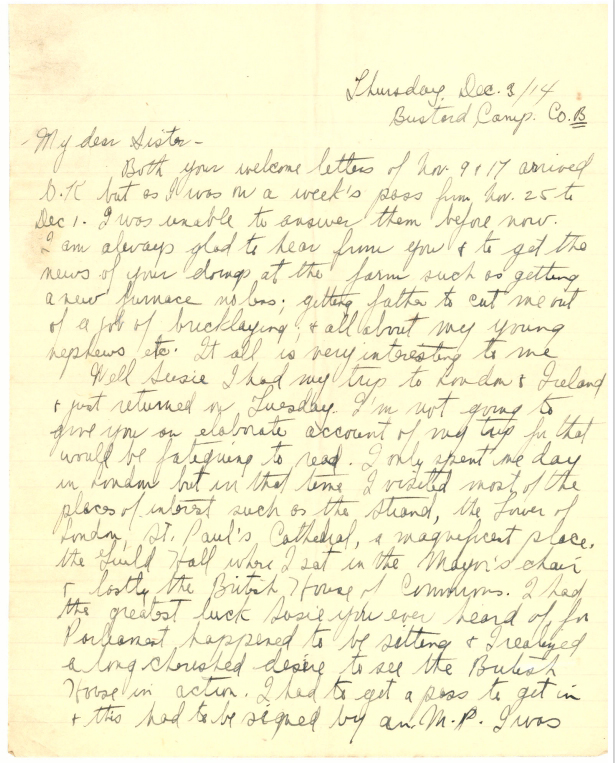 Thursday, Dec. 3/14
Bustard Camp. Co. B
My dear Sister -
Both your welcome letters of Nov. 9 & 17 arrived
O.K but as I was on a week's pass from Nov. 25 to
Dec 1. I was unable to answer them before now.
I am always glad to hear from you & to get the
news of your doings at the farm such as getting
a new furnace no less; getting father to cut me out
of a job of bricklaying, & all about my young
nephews etc. It all is very interesting to me
Well Susie I had my trip to London & Ireland
& just returned on Tuesday. I'm not going to
give you an elaborate account of my trip for that
would be fatiguing to read. I only spent one day
in London but in that time I visited most of the
places of interest such as the Strand, the Tower of
London, St. Paul's Cathedral, a magnificent place,
the Guild Hall where I sat in the Mayor's chair
& lastly the British House of Commons. I had
the greatest luck Susie you ever heard of, for
Parliament happened to be sitting & I realized
a long cherished desire to see the British
House in action. I had to get a pass to get in
& this had to be signed by an M.P. I was